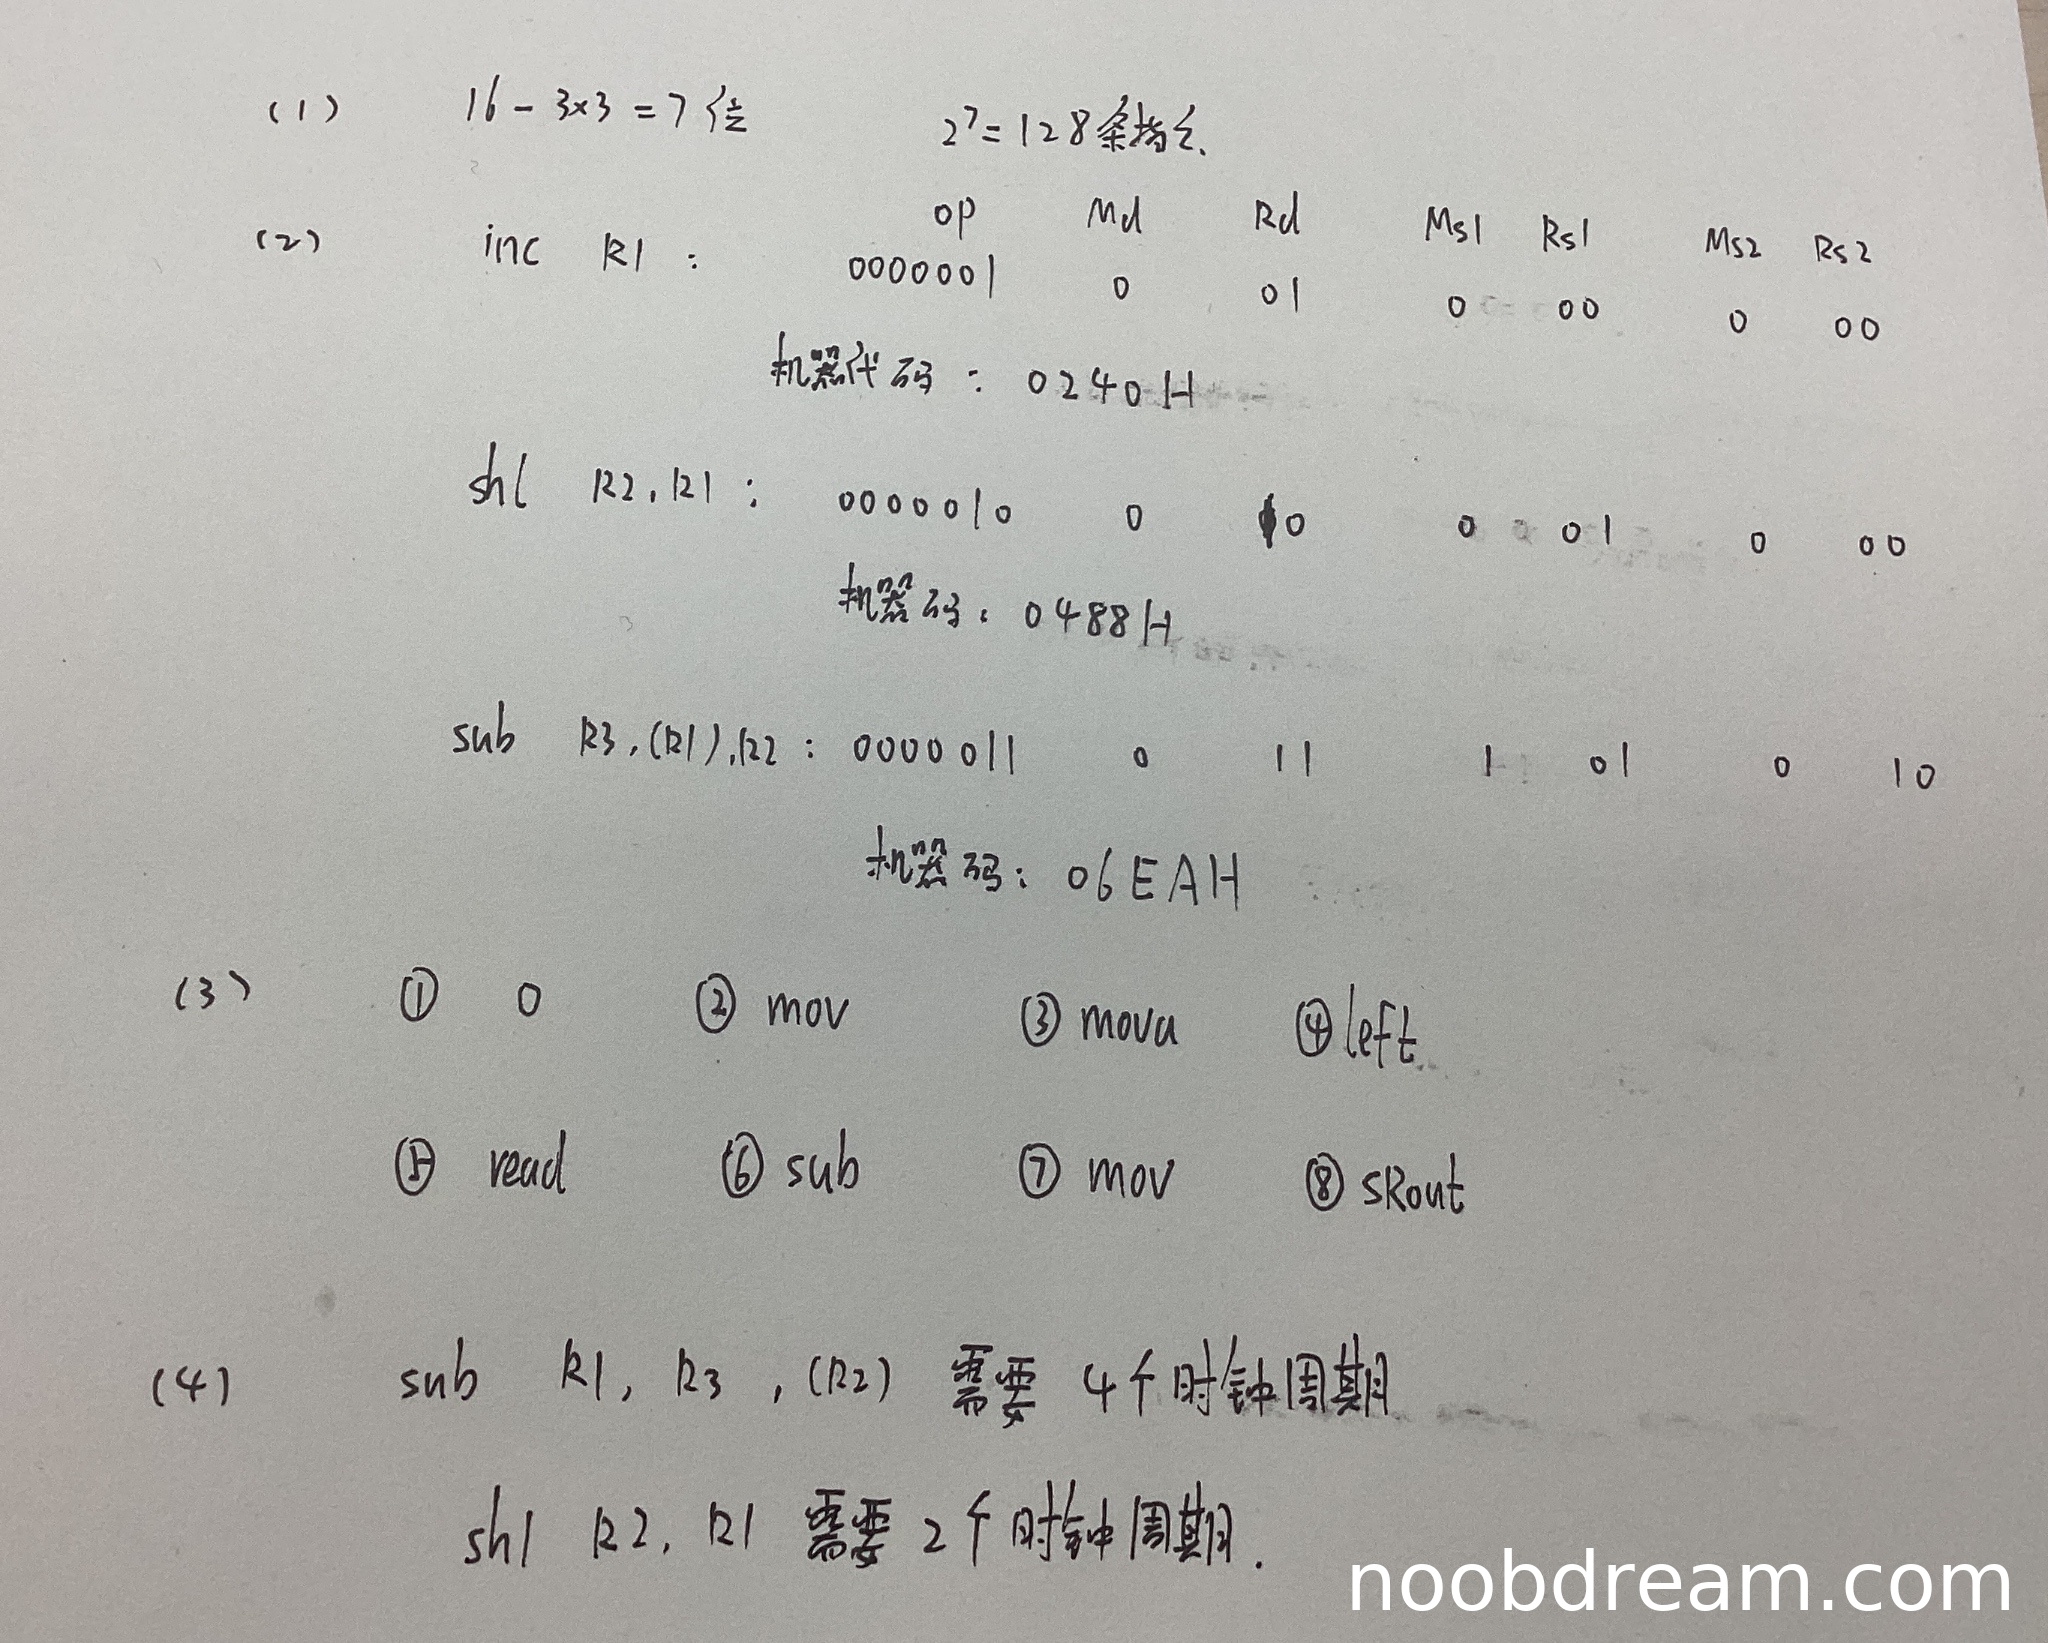 (1) 16-3×3=7位 2⁷=128条指令.
op Md Rd Ms1 Rs1 Ms2 Rs2
(2) inc R1: 0000001 0 01 0 00 0 00
机器代码: 0240H
shl R2,R1: 0000010 0 10 0 01 0 00
机器码: 0488H
sub R3,(R1),R2: 0000011 0 11 1 01 0 10
机器码: 06EAH
(3) ① 0 ② mov ③ mova ④ left
⑤ read ⑥ sub ⑦ mov ⑧ SRout
(4) sub R1, R3, (R2) 需要 4个时钟周期
shl R2, R1 需要 2个时钟周期.
noobdream.com